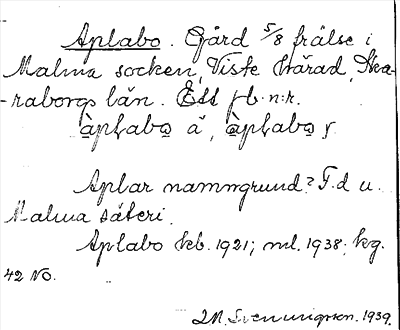 Aplabo. Gård 5/8 frälse i
Malma socken, Viste härad, Ska-
-raborgs län. Ett fb. n:r.
àplabo̲ å, àplabo̲ s
Aplar namngrund? F.d u.
Malma säteri.
Aplabo kb. 1921; ml. 1938. kg.
42 NO.
Svenungsson. 1939.